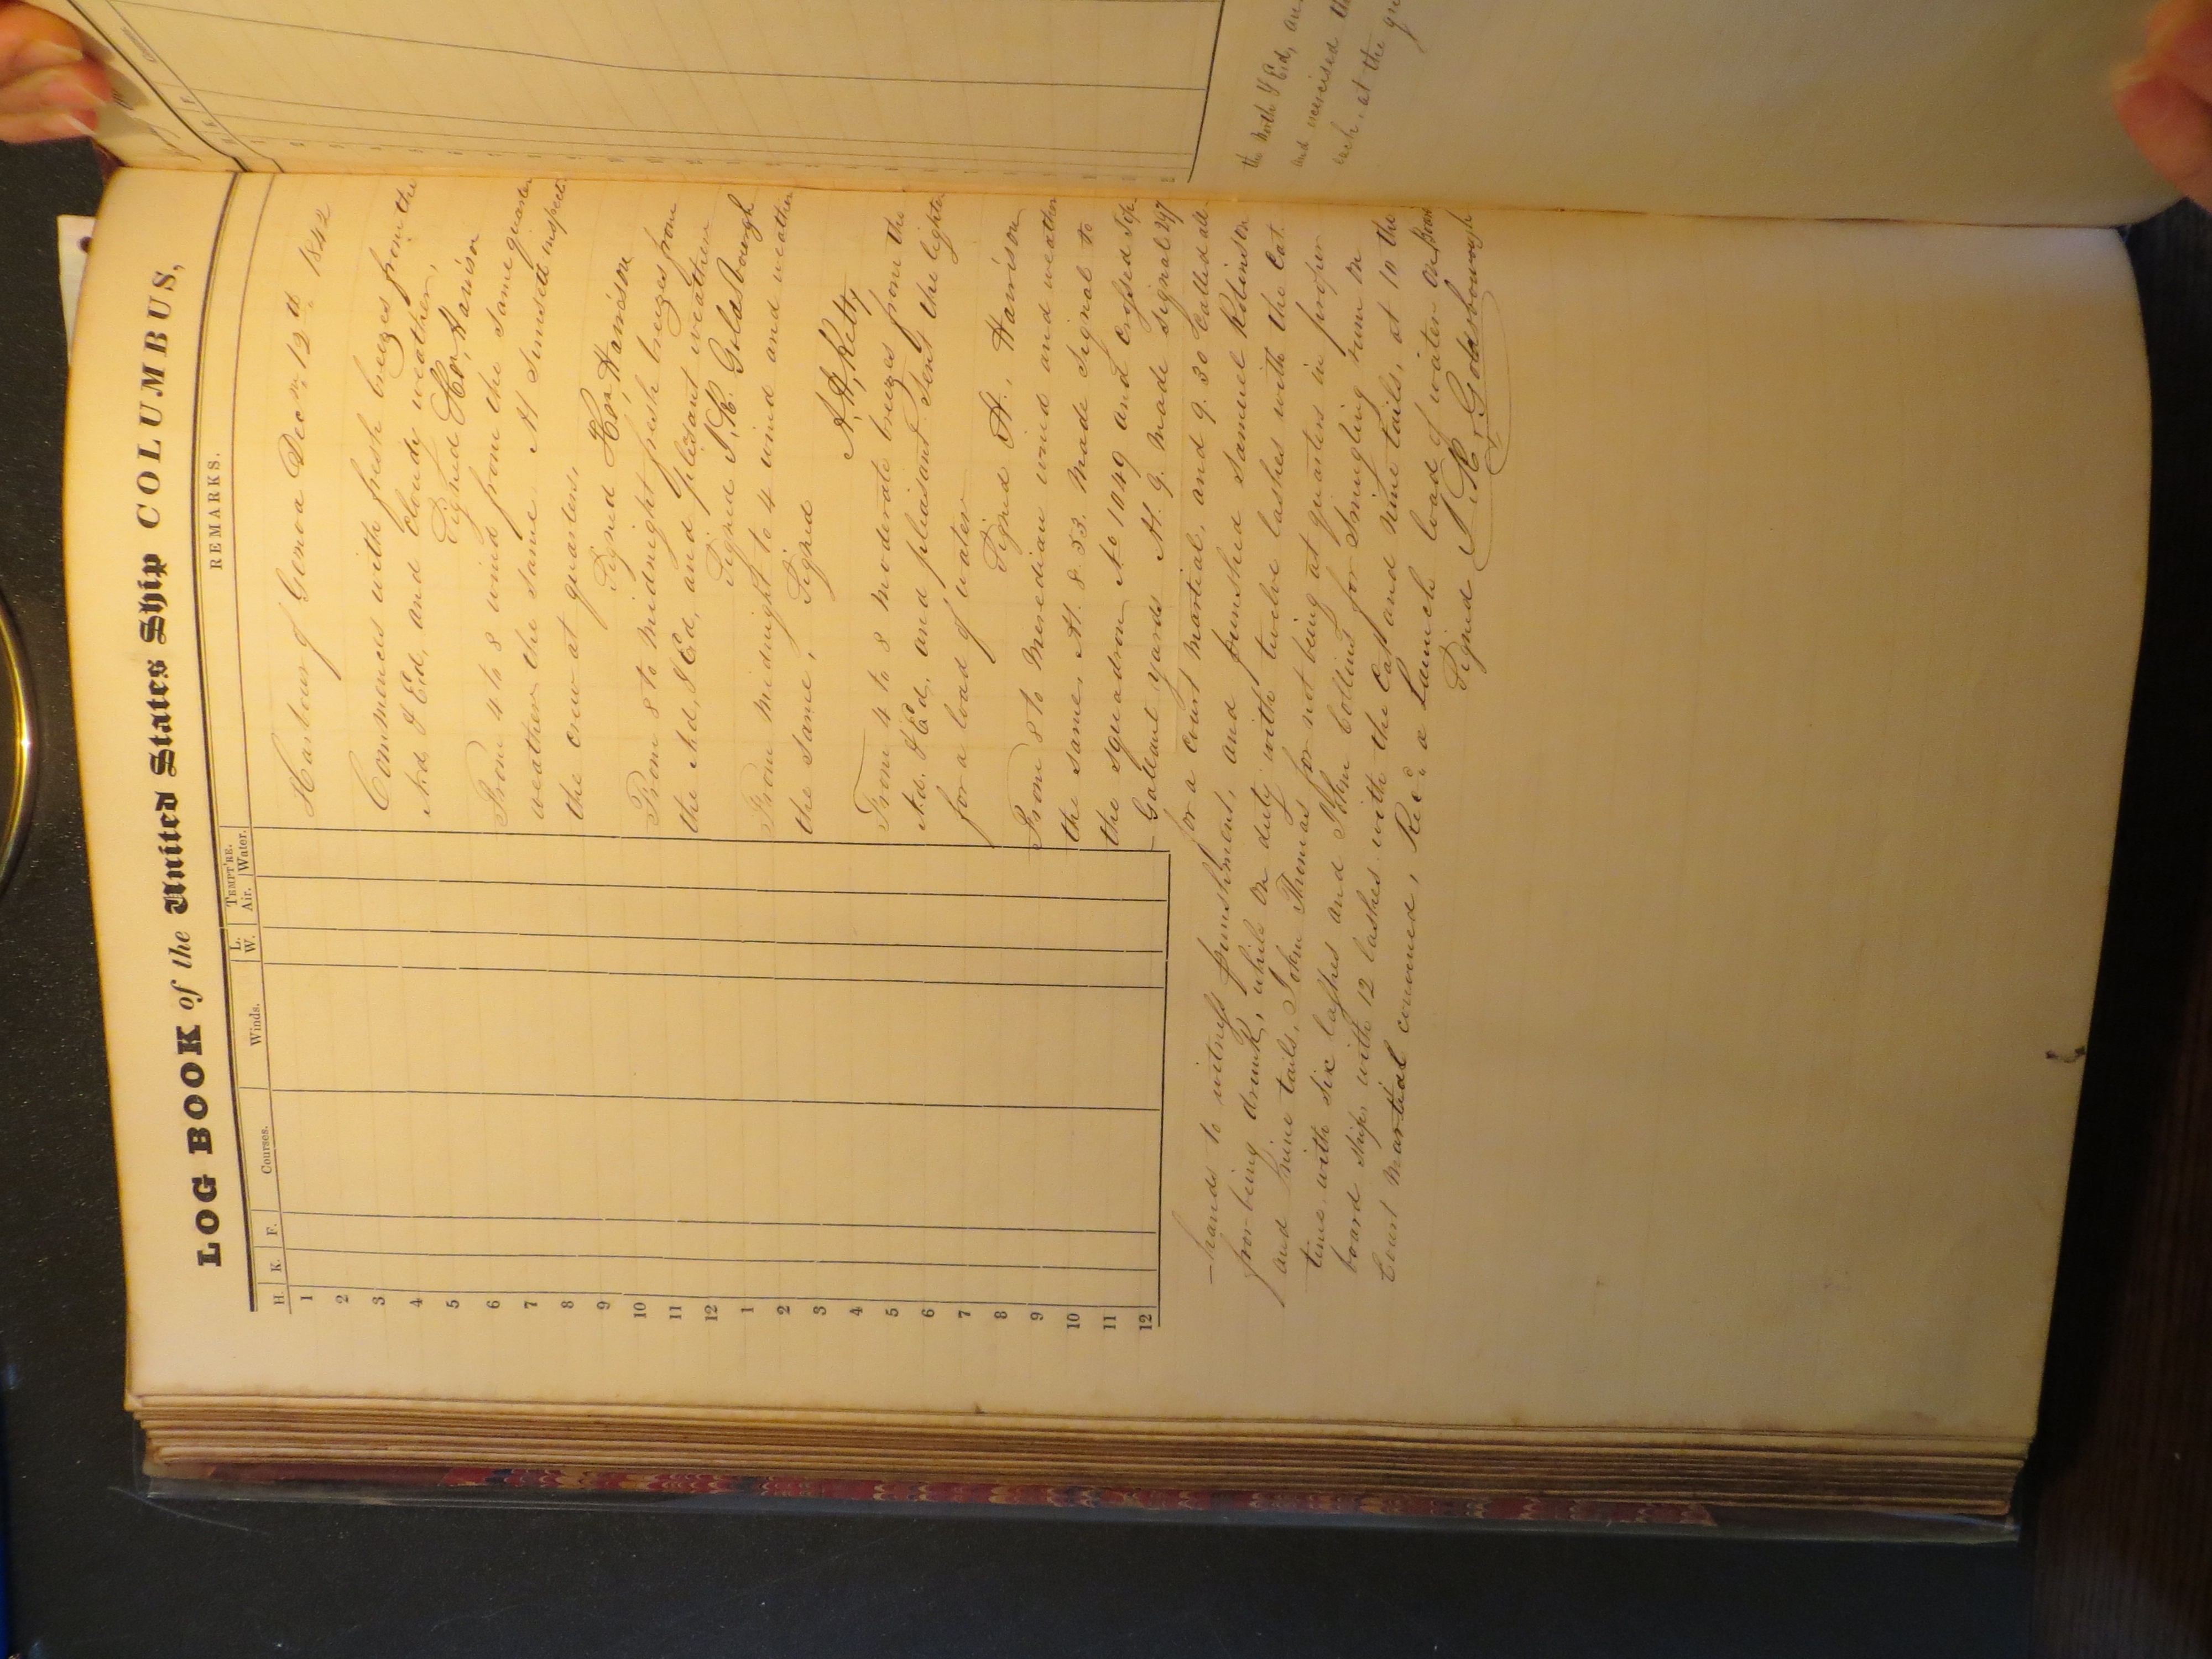 LOG BOOK of the United States Ship COLUMBUS,
H. K. F. Courses. Winds. L. W. TEMPT'RE. Air. Water. REMARKS.
1
2
3
4
5
6
7
8
9
10
11
12
1
2
3
4
5
6
7
8
9
10
11
12
Harbour of Genoa Decm 12th 1842
Commences with fresh breezes from the
Nd & Ed, and cloudy weather,
Signed Harrison
From 4 to 8 wind from the same quarter
weather the same. At Sunset inspect
the crew at quarters,
Signed Harrison
From 8 to Midnight fresh breezes from
the Nd, & Ed, and pleasant weather
Signed J. R. Goldsborough
From Midnight to 4 wind and weather
the same, Signed
A. H. Kelty
From 4 to 8 Moderate breezes from the
Nd. & Ed. and pleasant. Sent the lighter
for a load of water
Signed H. Harrison
From 8 to Meredian wind and weather
the same, At. 8. 53. Made Signal to
the squadron No 1049 and crossed
Gallant yards At. 9. Made Signal 297
for a court martial, and 9. 30 Called all
hands to witness punishment, and punished Samuel Robinson
for being drunk, while on duty with twelve lashes with the Cat.
and nine tails, John Thomas for not being at quarters in proper
time with six lashes and John Collins for Smugling rum on
board ship, with 12 lashes with the Cat and nine tails, at 10 the
Court Martial convened, Recd a Launch load of water on board
Signed J. R. Goldsborough
the North & Ed,
and exercised
each, at the